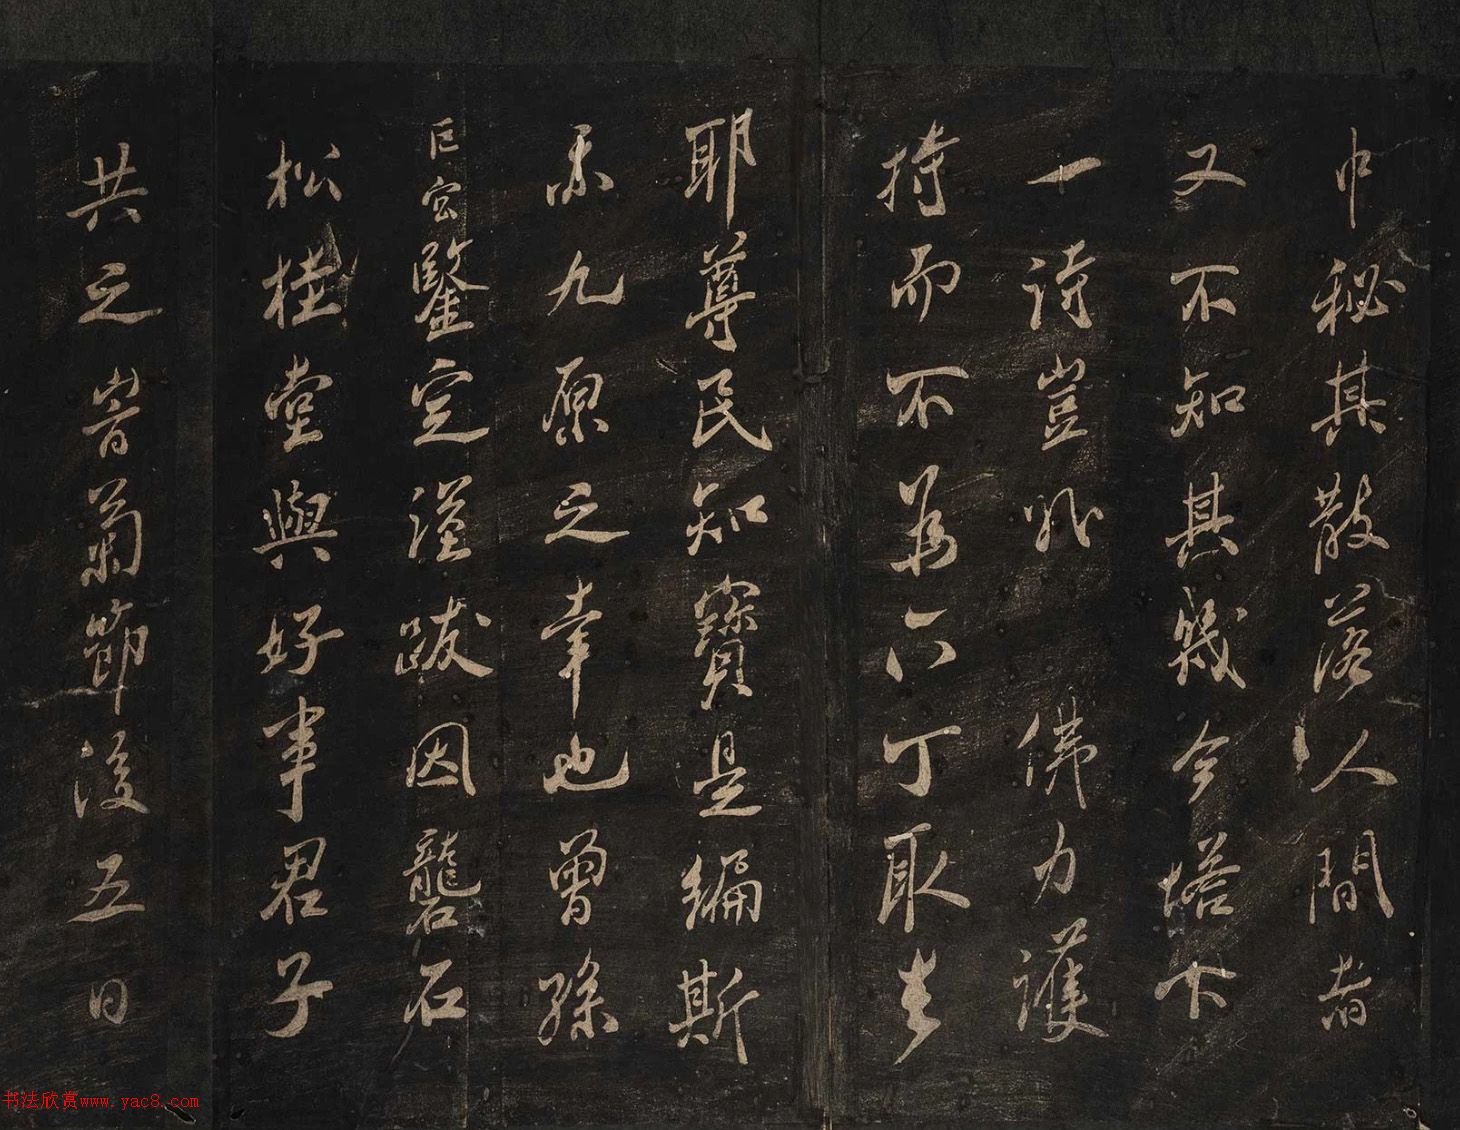 巾秘其散落人間者
又不知其幾今塔下
一詩豈非佛力護
持而不為六丁取去
耶尊民知寶是編斯
亦九原之幸也曾孫
宏鑒定謹跋因礱石
松桂堂與好事君子
共之旹菊節後五日
书法欣赏www.yac8.com